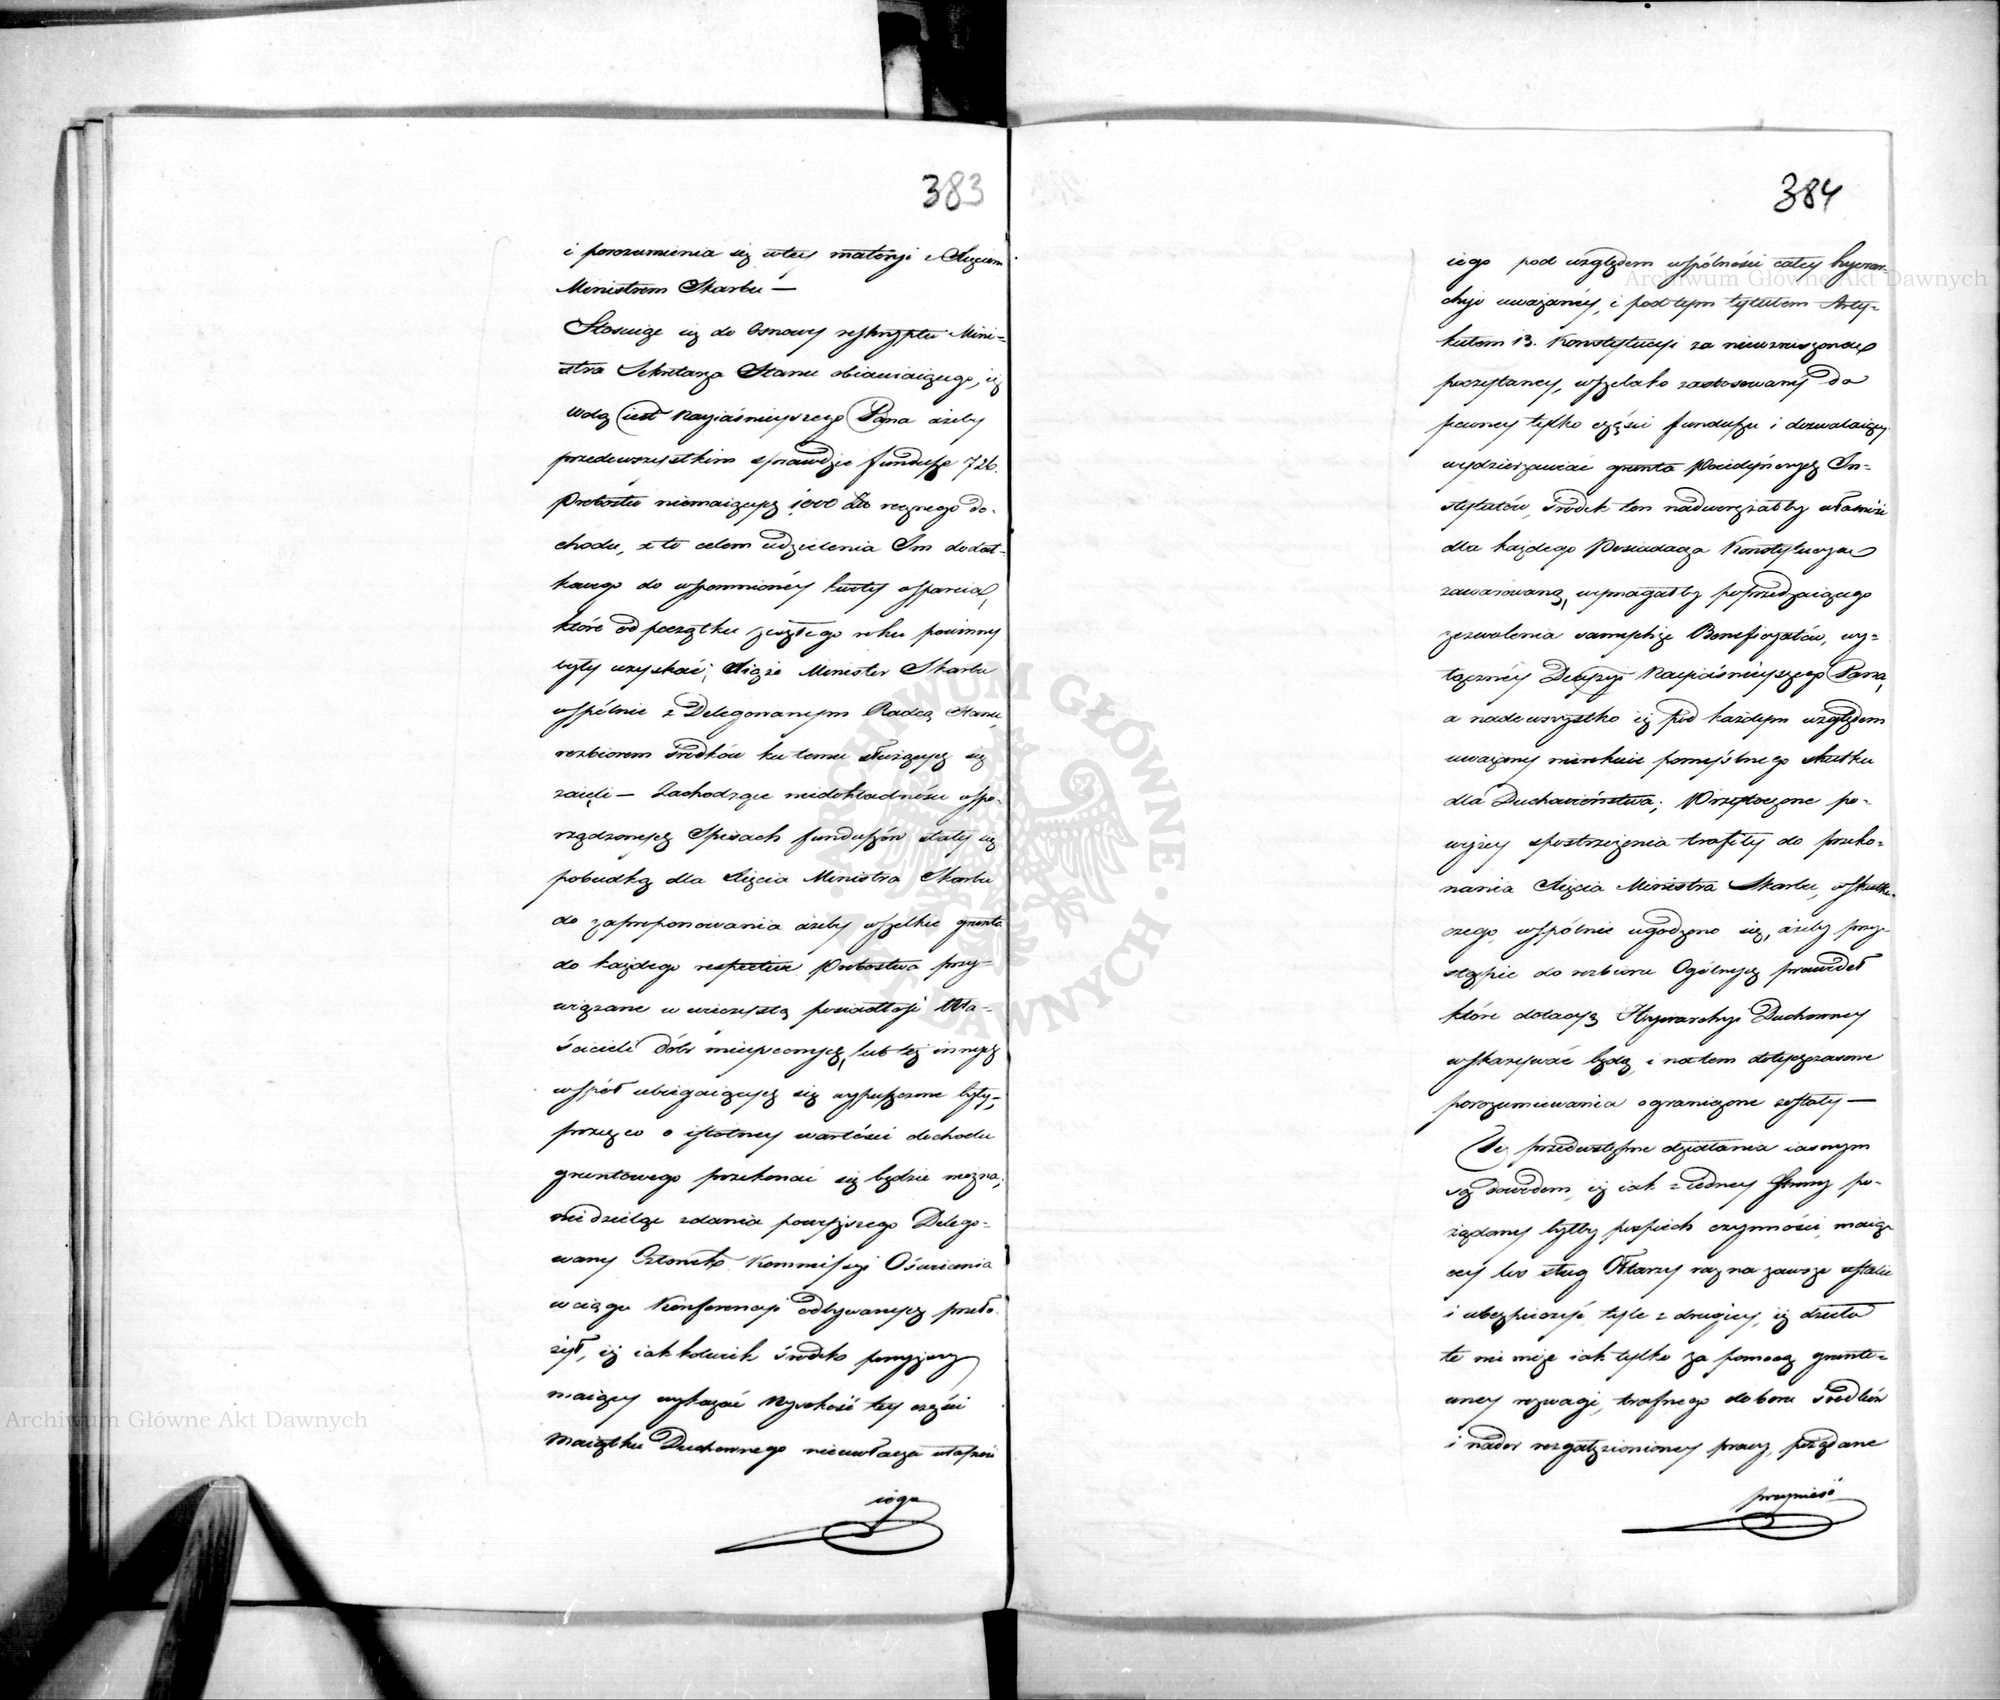 383
i porozumienia się wtey materyi z Xięciem
Ministrem Skarbu —
Stosuiąc się do Osnowy reskryptu Mini-
stra Sekretarza Stanu obiawiaiącego, iż
wolą iest Nayiaśnieyszego Pana ażeby
przedewszystkim sprawdzić fundusze 726.
Probostw niemaiących 1000 Złt rocznego do-
chodu, a to celem udzielenia Im dodat-
kowego do wspomnioney kwoty wsparcia,
które od początku zeszłego roku powinny
były uzyskać; Xiąże Minister Skarbu
wspólnie z Delegowanym Radcą Stanu,
rozbiorem środków ku temu służących się
zaięli — Zachodzące niedokładności wspo-
rządzonych Spisach funduszów stały się
pobudką dla Xięcia Ministra Skarbu
do zaproponowania ażeby wszelkie grunta
do każdego respective Probostwa przy-
wiązane w wieczystą posiadłość Wła-
ścicieli dóbr mieyscowych, lub też innych
wspoł ubiegaiących się wypuszczone były,
przez co o istotney wartości dochodu
gruntowego przekonać się będzie można;
nie dzieląc zdania powyższego Delego-
wany Członek Kommissyi Oświecenia
wciągu Konferencyi odbywanych przeło-
żył, iż iakkolwiek środek powyższy
maiący wykazać Wysokość tey części
Maiątku Duchownego nieuwłacza własności
iego
384
iego pod względem wspólności całey hyerar-
chyi uważaney, i pod tym tytułem Arty-
kułem 13. Konstytucyi za niewzruszoną
poczytaney, wszelako zastosowany do
pewney tylko części funduszu i dozwalaiący
wydzierżawiać grunta Poiedyńczych In-
stytutów, środek ten nadwerężałby własność
dla każdego Posiadacza Konstytucyą
zawarowaną, wymagałby poprzedzaiącego
zezwolenia samychże Beneficyatów, wy-
łączney Decyzyi Nayiaśnieyszego Pana,
a nadewszystko iż pod każdym względem
uważany nierokuie pomyślnego skutku
dla Duchowieństwa; Przytoczone po-
wyżey spostrzeżenia trafiły do przeko-
nania Xięcia Ministra Skarbu, wskutku
czego, wspólnie ugodzono się, ażeby przy-
stąpić do rozbioru Ogólnych prawideł
które dotacyą Hyerarchyi Duchowney
wskazywać będą, i na tem dotychczasowe
porozumiewania ograniczone zostały —
Te przedwstępne działania iasnym
są dowodem, iż iak z iedney strony po-
żądany byłby pospiech czynności, maiąc
cey los sług Ołtarzy raz na zawsze ustalić
i ubezpieczyć tyle z drugiey, iż dzieło
te nie może iak tylko za pomocą grunto-
wney rozwagi, trafnego doboru środków
i nader rozgałęzioney pracy, pożądane
przynieść